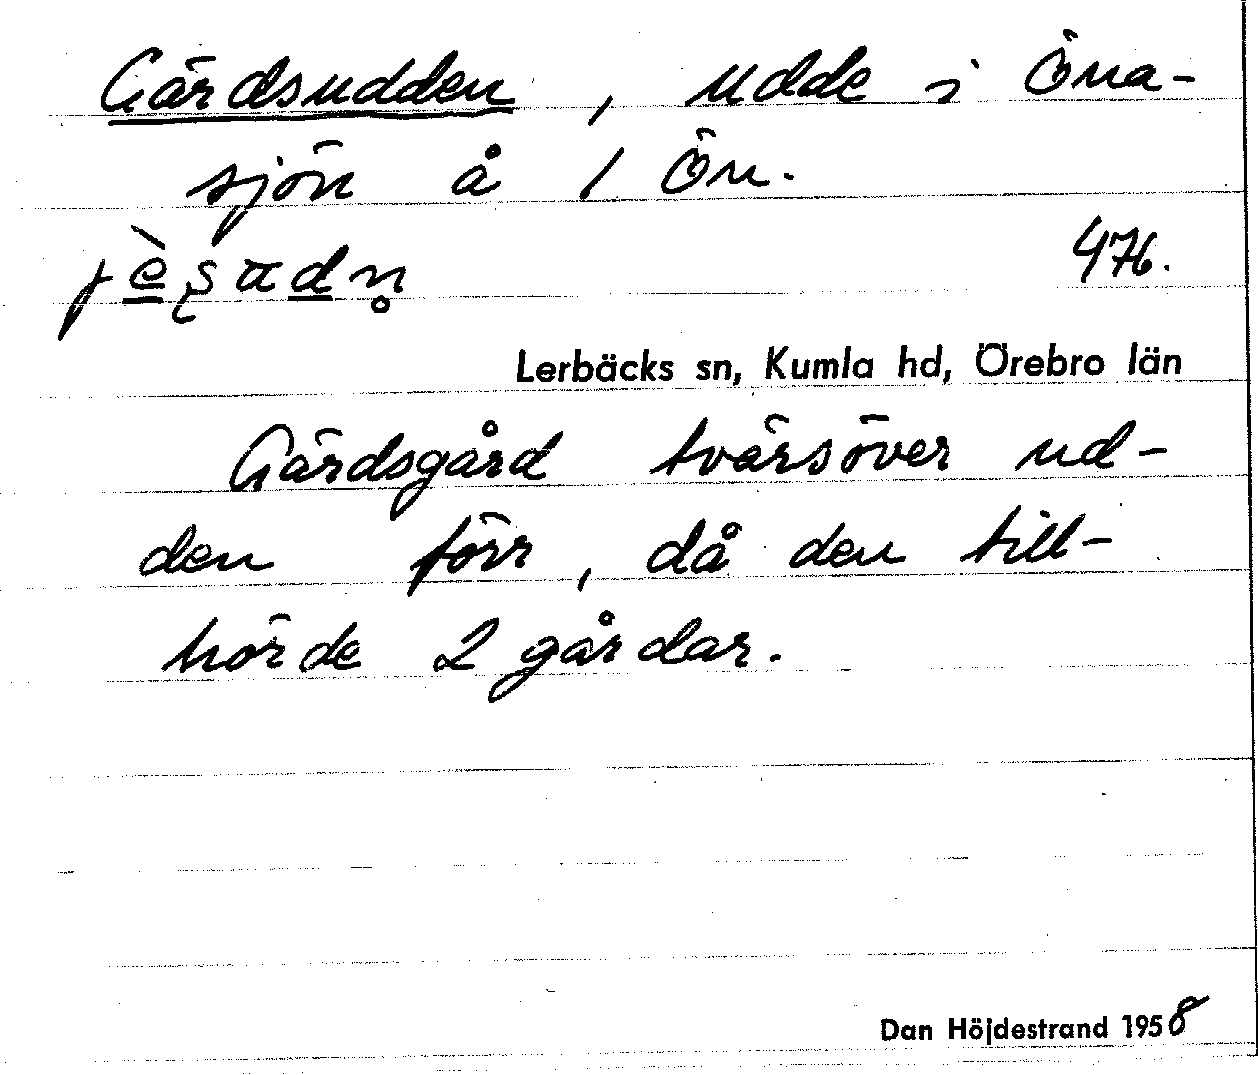 Gärdsudden, udde i Öna-
sjön å 1 Ön.
476.
Lerbäcks sn, Kumla hd, Örebro län
Gärdsgård tvärsöver ud-
den förr, då den till-
hörde 2 gårdar.
Dan Höjdestrand 1958